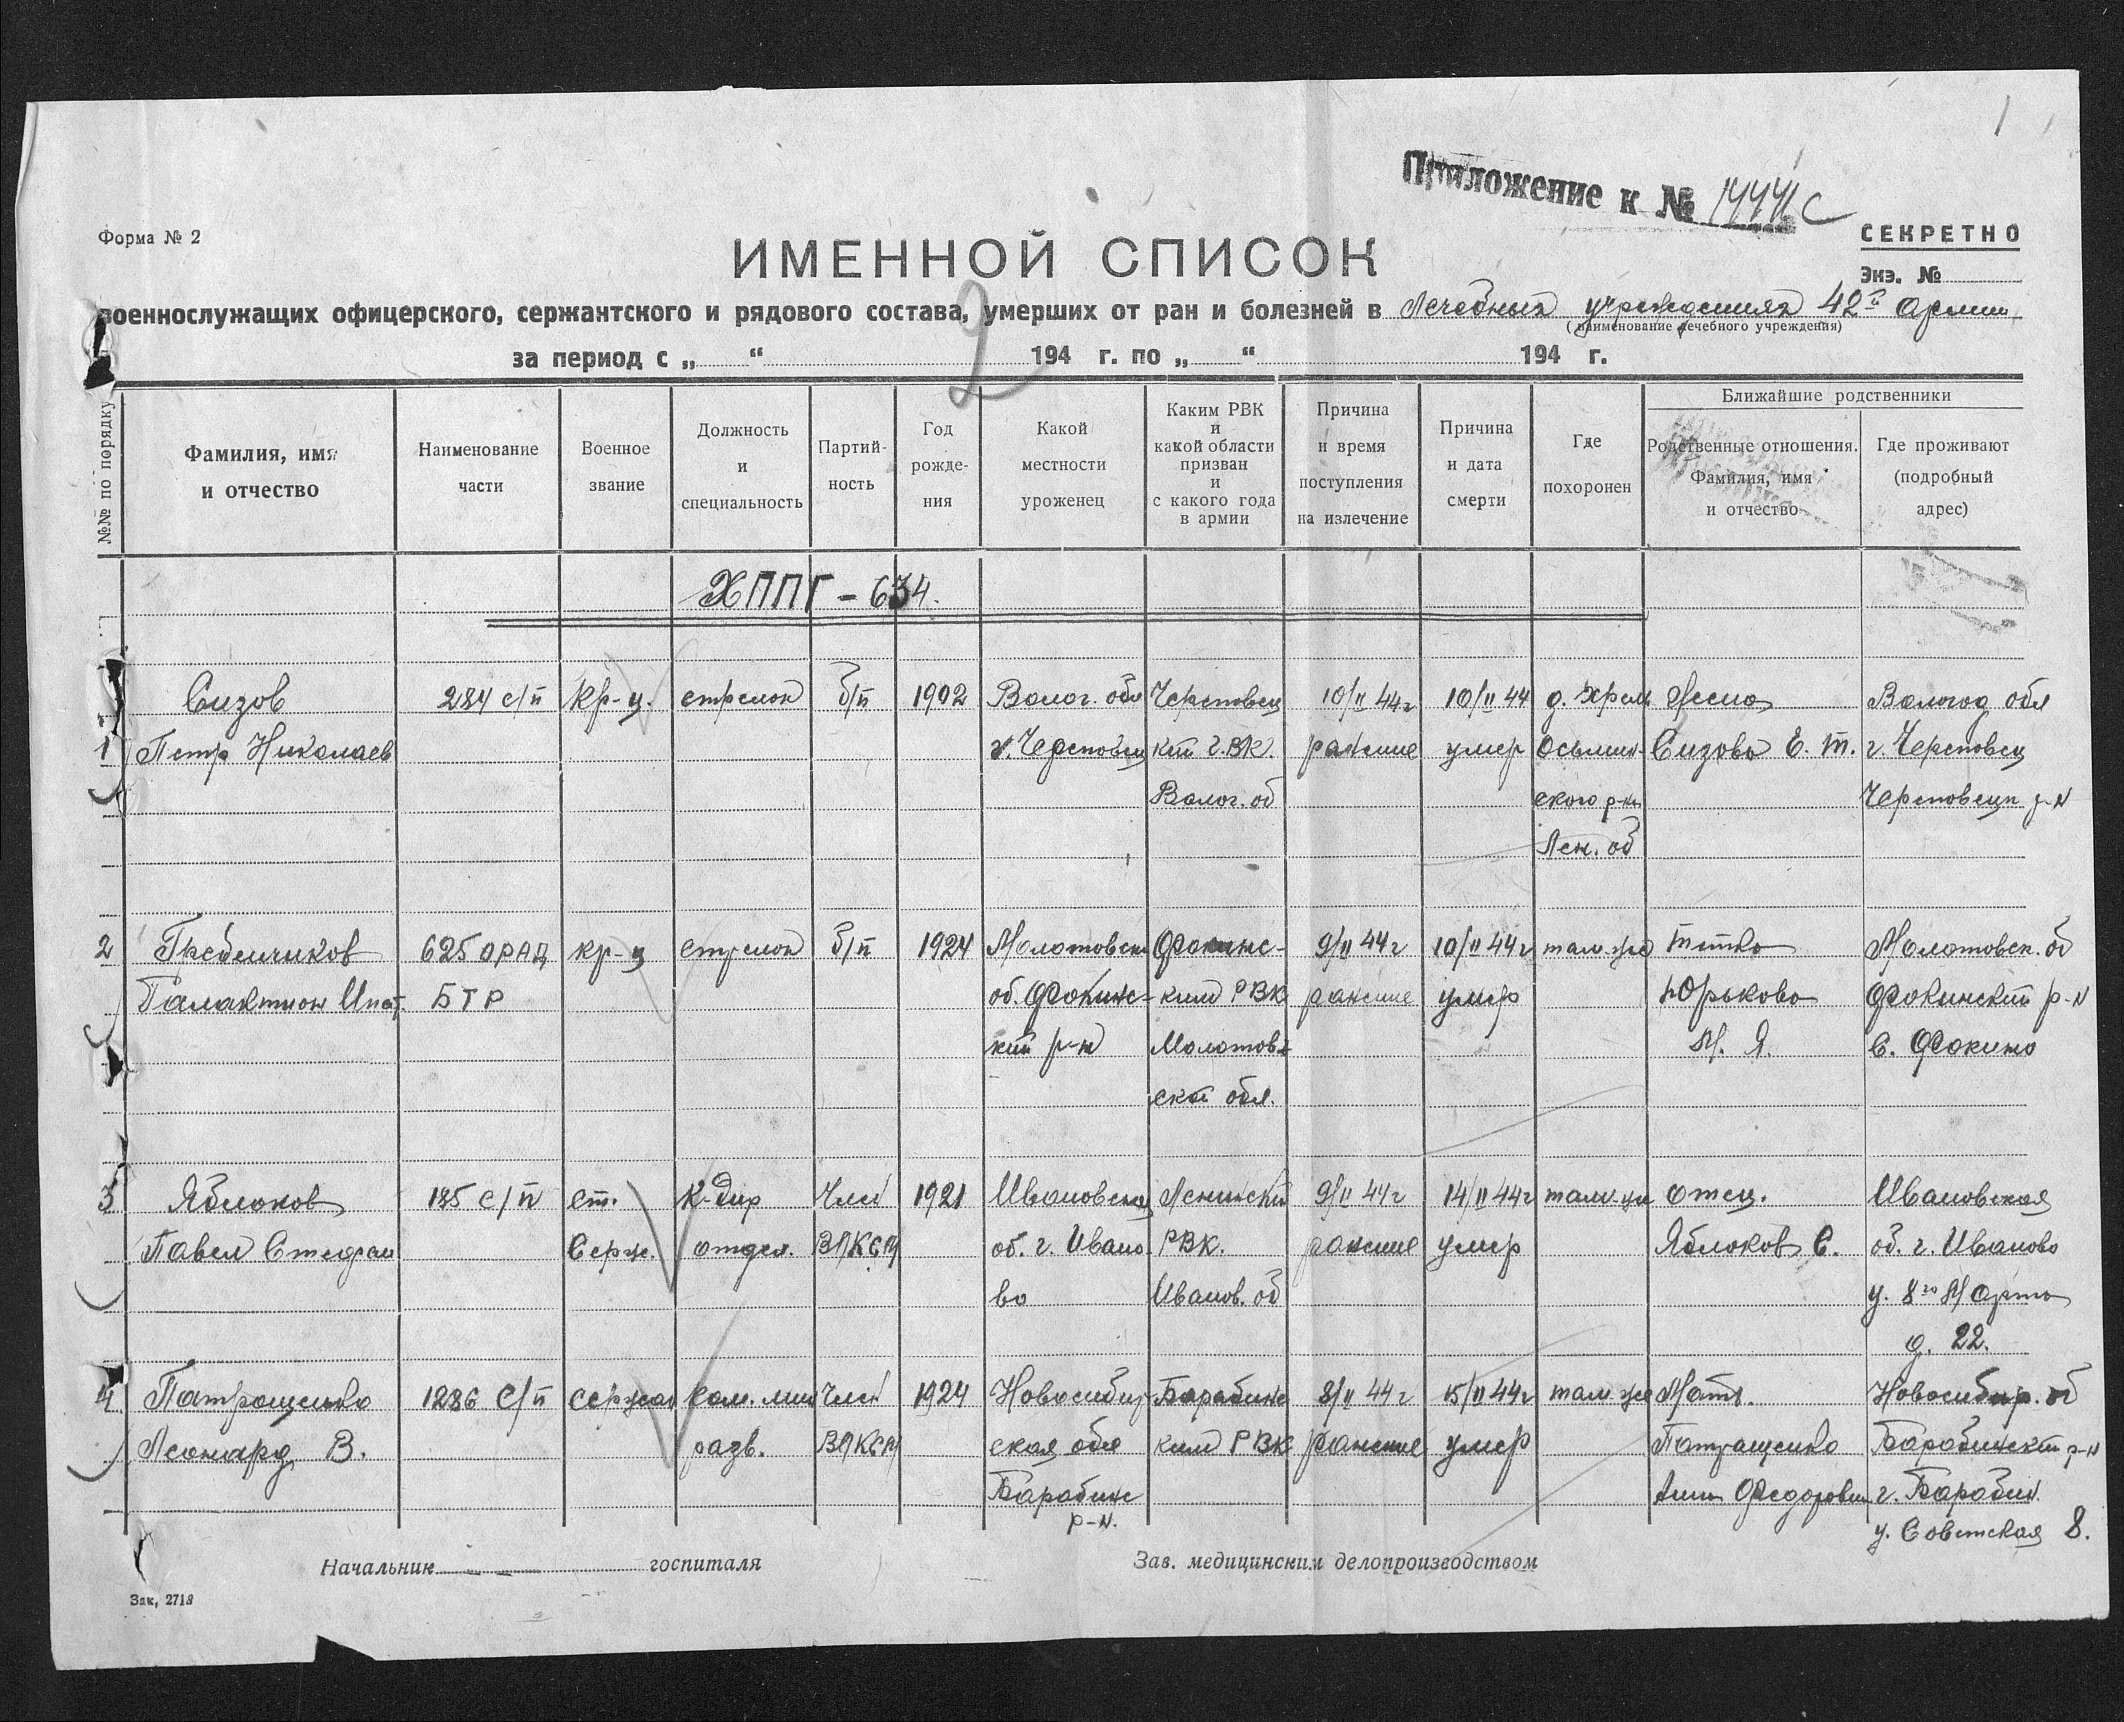 1
Приложение к № 14441с
Форма № 2
СЕКРЕТНО
ИМЕННОЙ СПИСОК
Экз. №
военнослужащих офицерского, сержантского и рядового состава, умерших от ран и болезней в Лечебных учреждениях 42й Армии
(наименование лечебного учреждения)
2
за период с „ “ 194 г. по „ “ 194 г.
№№ по порядку
Фамилия, имя и отчество
Наименование части
Военное звание
Должность и специальность
Партий-ность
Год рожде-ния
Какой местности уроженец
Каким РВК и какой области призван и с какого года в армии
Причина и время поступления на излечение
Причина и дата смерти
Где похоронен
Ближайшие родственники
Родственные отношения. Фамилия, имя и отчество
Где проживают (подробный адрес)
ХППГ - 634.
Сизов 284 с/п кр-ц. стрелок б/п 1902 Волог. обл Череповец 10/II 44г 10/II 44 д. Жена Вологод обл
1 Петр Николаев г. Череповец кий Г.ВК. ранение умер Осьмин- Сизова Е. т. г. Череповец
Волог. об ского р-на Череповецк р-н
Лен. об
2 Гребенчиков 625 ОРАД кр-ц стрелок б/п 1924 Молотовская Фокинс- 9/II 44г 10/II 44г там-же тетка Молотовск. об
Галактион Ипат. БТР об. Фокинс- ким РВК ранение умер Юрькова Фокинский р-н
кий р-н Молотов- М. Я. с. Фокино
ской обл.
3 Яблоков 185 с/п ст. К-дир Член 1921 Ивановская Ленинский 9/II 44г 14/II 44г там-же отец. Ивановская
Павел Стефан Серж. отдел. ВЛКСМ об. г. Ивано РВК. ранение умер Яблоков С. об. г. Иваново
во Иванов. об у. 8го Марта
д. 22.
4 Патрощенко 1286 с/п сержан ком. мин Член 1924 Новосибир Барабинс 8/II 44г 15/II 44г там-же Мать. Новосибир. об
Леонард В. разв. ВЛКСМ ская обл ким РВК ранение умер Патращенко Барабинский р-н
Барабинс Анна Федоровна г. Барабин
р-н. у. Советская 8.
Начальник госпиталя Зав. медицинским делопроизводством
Зак, 2718